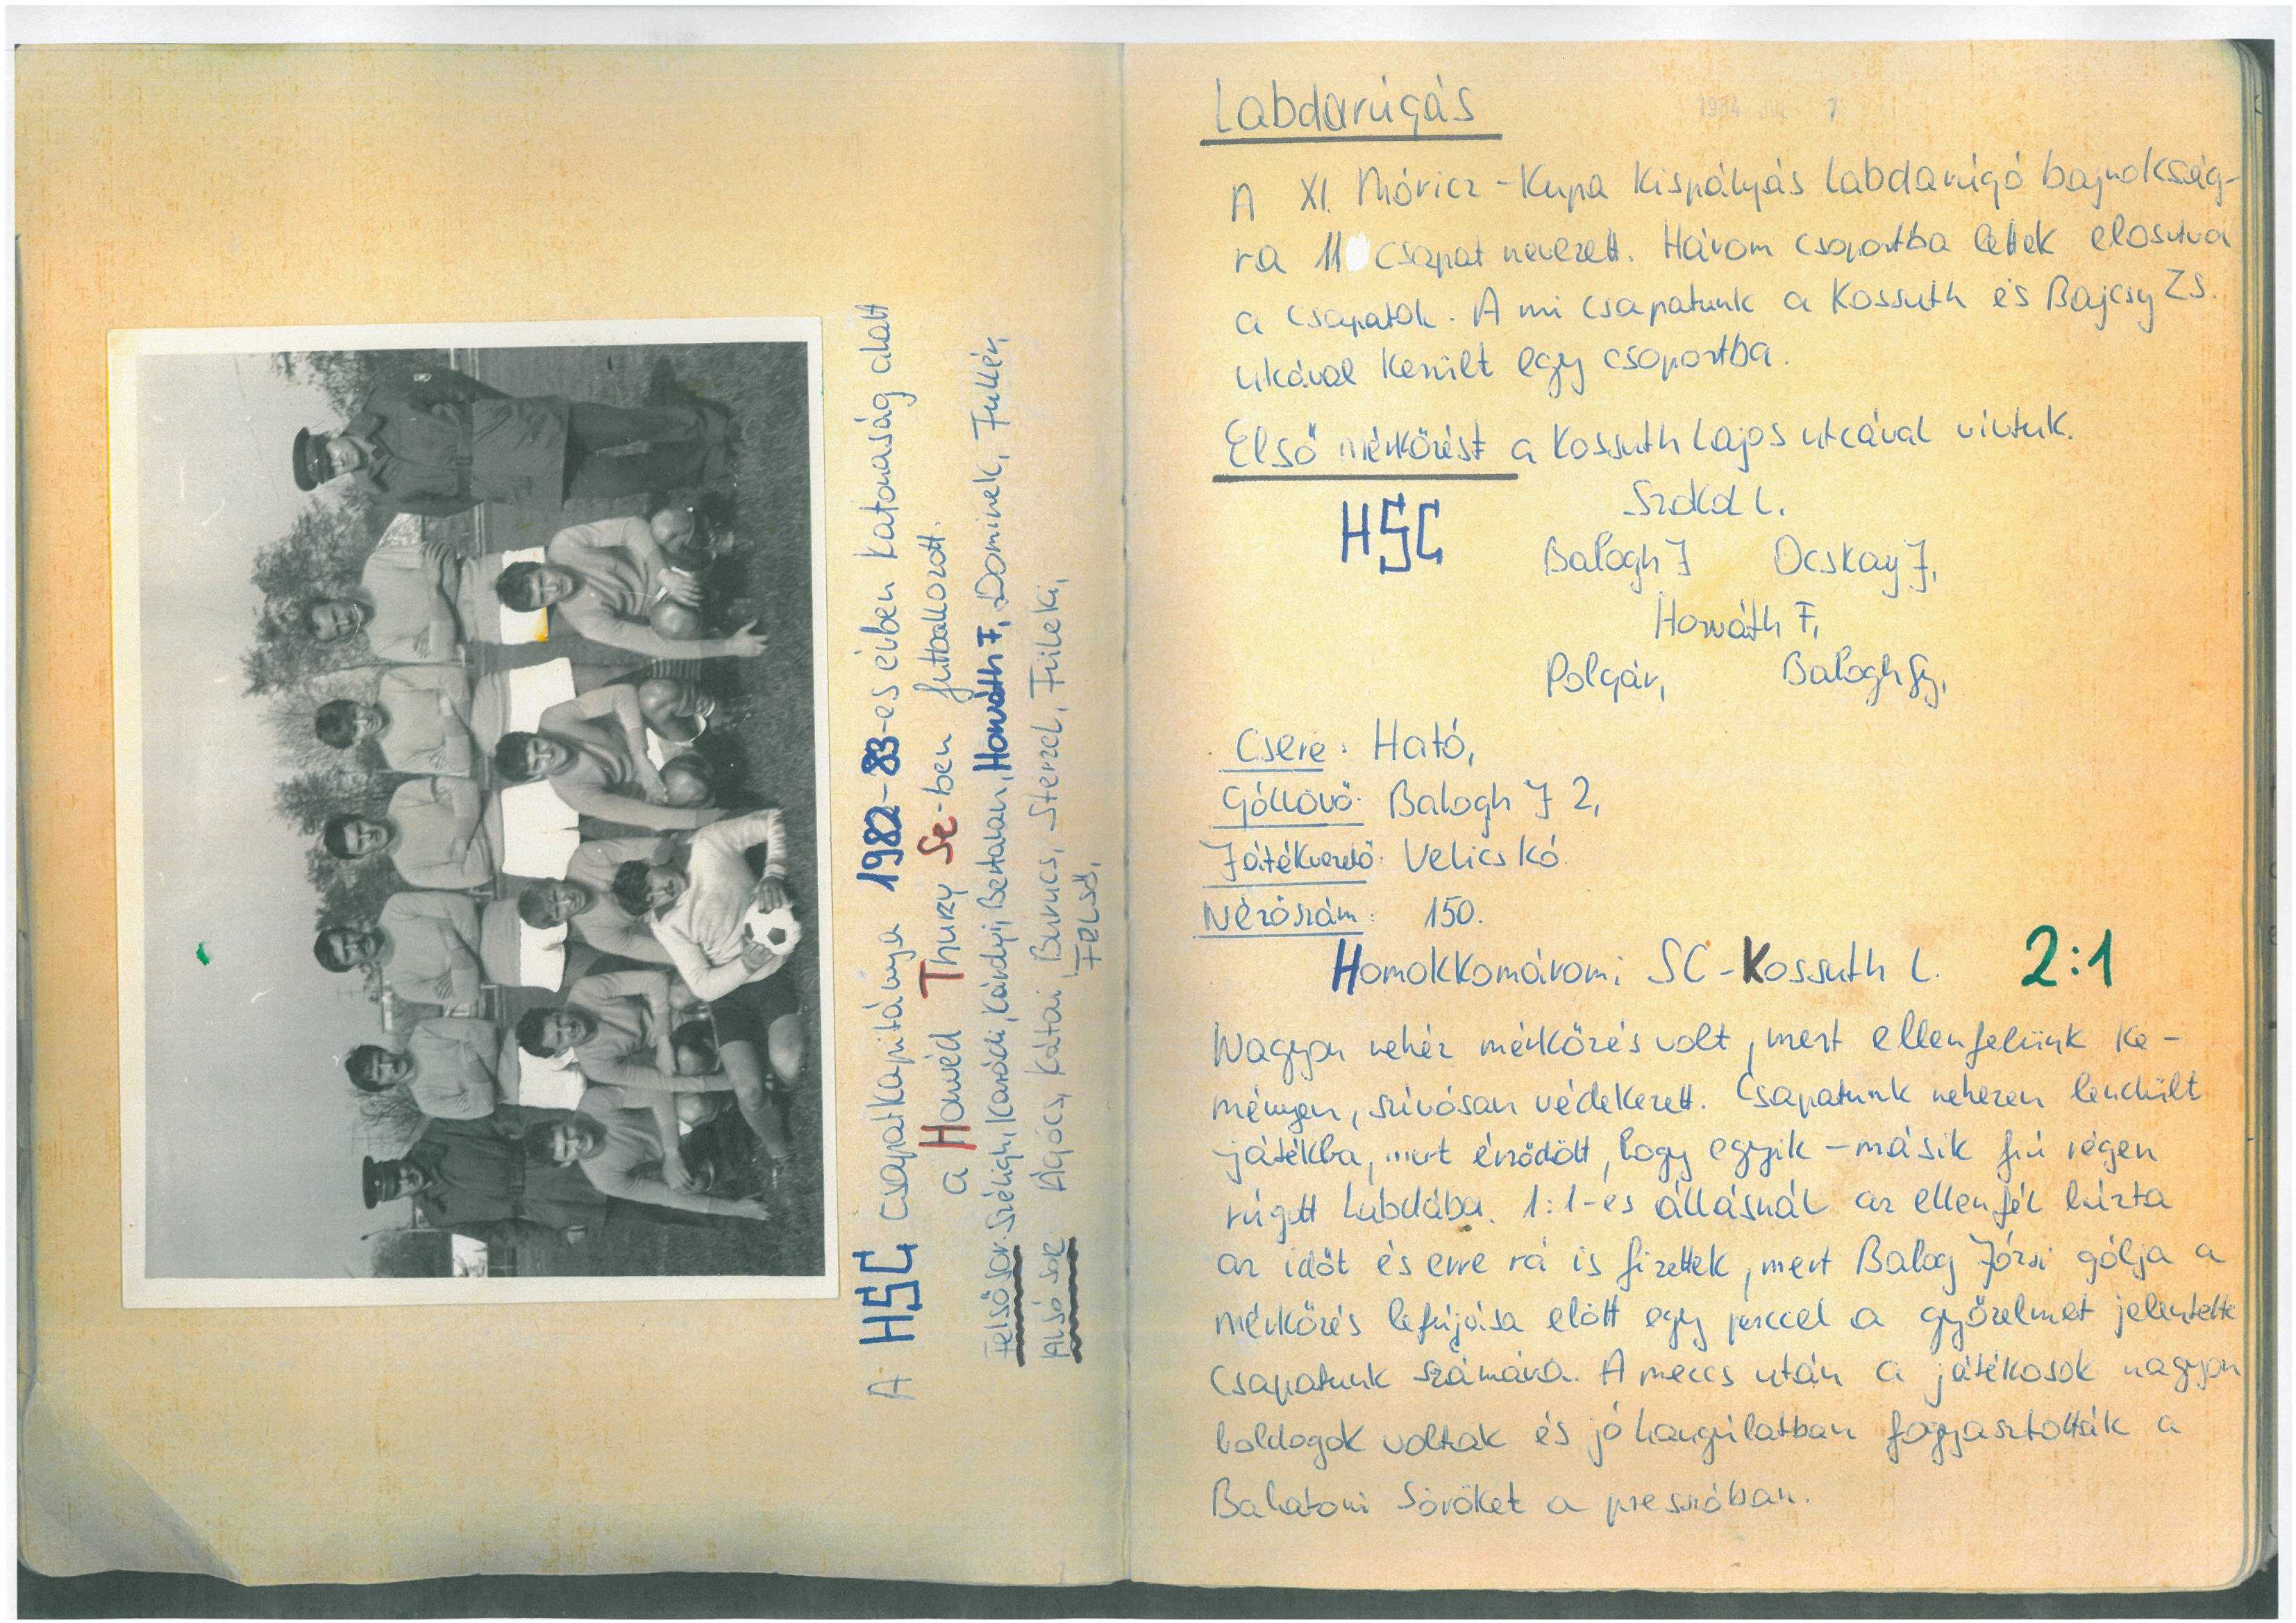 A HSC csapatkapitánya 1982-83-es évben katonaság alatt
a Honvéd Thury Se-ben futballozott.
Felső sor: Széligh, Karádi, Károlyi, Bertalan, Horváth F, Dominek, Fullér,
Alsó sor Agócs, Kátai, Burucs, Sterzel, Füleki,
Felső,
Labdarúgás
1984 7
A XI. Móricz-Kupa Kispályás labdarúgó bajnokság-
ra 11 csapat nevezett. Három csoportba lettek elosztva
a csapatok. A mi csapatunk a Kossuth és Bajcsy Zs.
utcával került egy csoportba.
Első mérkőzést a Kossuth Lajos utcával vívtuk.
HSC Szokol L.
Balogh J Ocskay J,
Horváth F,
Polgár, Balogh Gy,
Csere: Ható,
Góllövő: Balogh J 2,
Játékvezető: Velics kó.
Nézőszám: 150.
Homokkomáromi SC-Kossuth L. 2:1
Nagyon nehéz mérkőzés volt, mert ellenfelünk ke-
ményen, szívósan védekezett. Csapatunk nehezen lendült
játékba, mert érződött, hogy egyik-másik fiú régen
rúgott labdába. 1:1-es állásnál az ellenfél húzta
az időt és erre rá is fizettek, mert Balog Józsi gólja a
mérkőzés lefújása előtt egy perccel a győzelmet jelentette
csapatunk számára. A meccs után a játékosok nagyon
boldogok voltak és jó hangulatban fogyasztották a
Balatoni Söröket a presszóban.